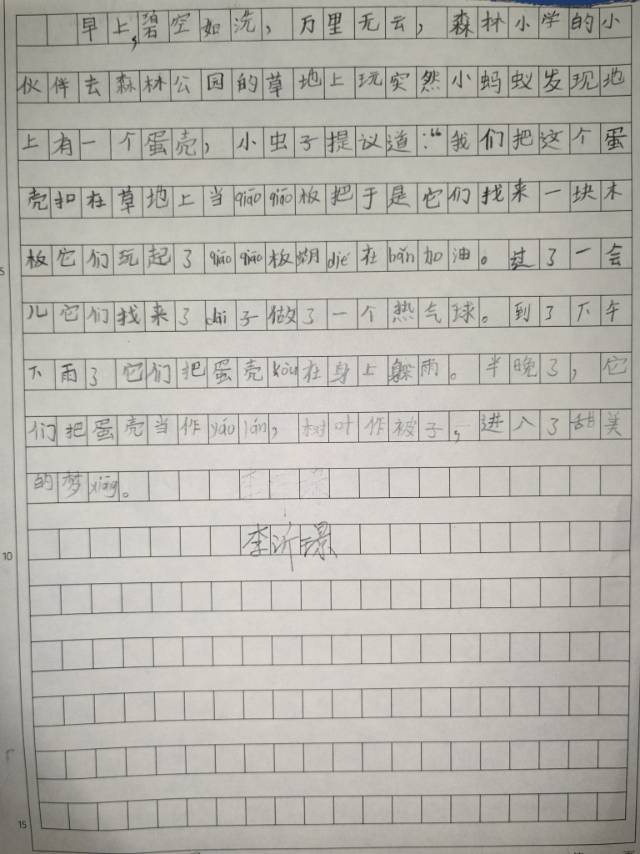 早上,碧空如洗，万里无云，森林小学的小
伙伴去森林公园的草地上玩突然小蚂蚁发现地
上有一个蛋壳，小虫子提议道:“我们把这个蛋
壳扣在草地上当qiāo qiāo板把于是它们找来一块木
板它们玩起了qiāo qiāo板蝴dié在bān加油。过了一会
儿它们找来了dài子做了一个热气球。到了下午
下雨了它们把蛋壳kòu在身上躲雨。半晚了，它
们把蛋壳当作yáo lán，树叶作被子，进入了甜美
的梦xiāng。
5
10
李沂璟
15